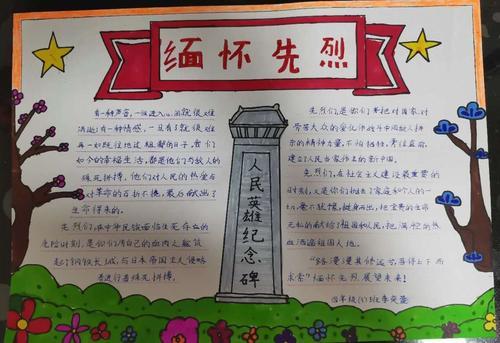 缅怀先烈
有一种声音，一旦进入心洞就很难
消逝；有一种情感，一旦有了就很难
再一如既往地过祖鄢的日子，我们
如今的幸福生活，都是他们与敌人的
殊死拼搏，他们对人民的热爱与
对革命的百折不挠，最后献出了
生命得来的。
先烈们，在中华民族面临生死存亡的
危险时刻，是你们用自己的血肉之躯筑
起了钢铁长城，与日本帝国主义侵略
者进行着殊死拼搏。
人民英雄纪念碑
先烈们，是你们秉把对国家、对
劳苦大众的爱化作战斗中固敌人拼
杀的精神力量，不怕牺牲，勇往直前，
建立了人民当家作主的新中国。
先烈们，在社会主义建设最重要的
时刻，又是你们抛去了家庭和个人的一
切，毫不犹豫，挺身而出，把宝贵的生命
无私的献给了祖国和人民，把满腔的热
血洒遍祖国大地。
“路漫漫其修远兮，吾将上下而
求索”缅怀先烈，展望未来！
四年级(1)班